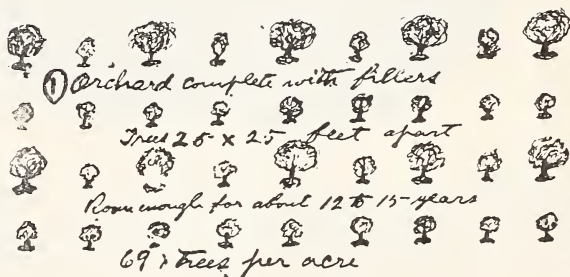 ① Orchard complete with fillers
Trees 25 x 25 feet apart
Room enough for about 12 to 15 years
69 trees per acre